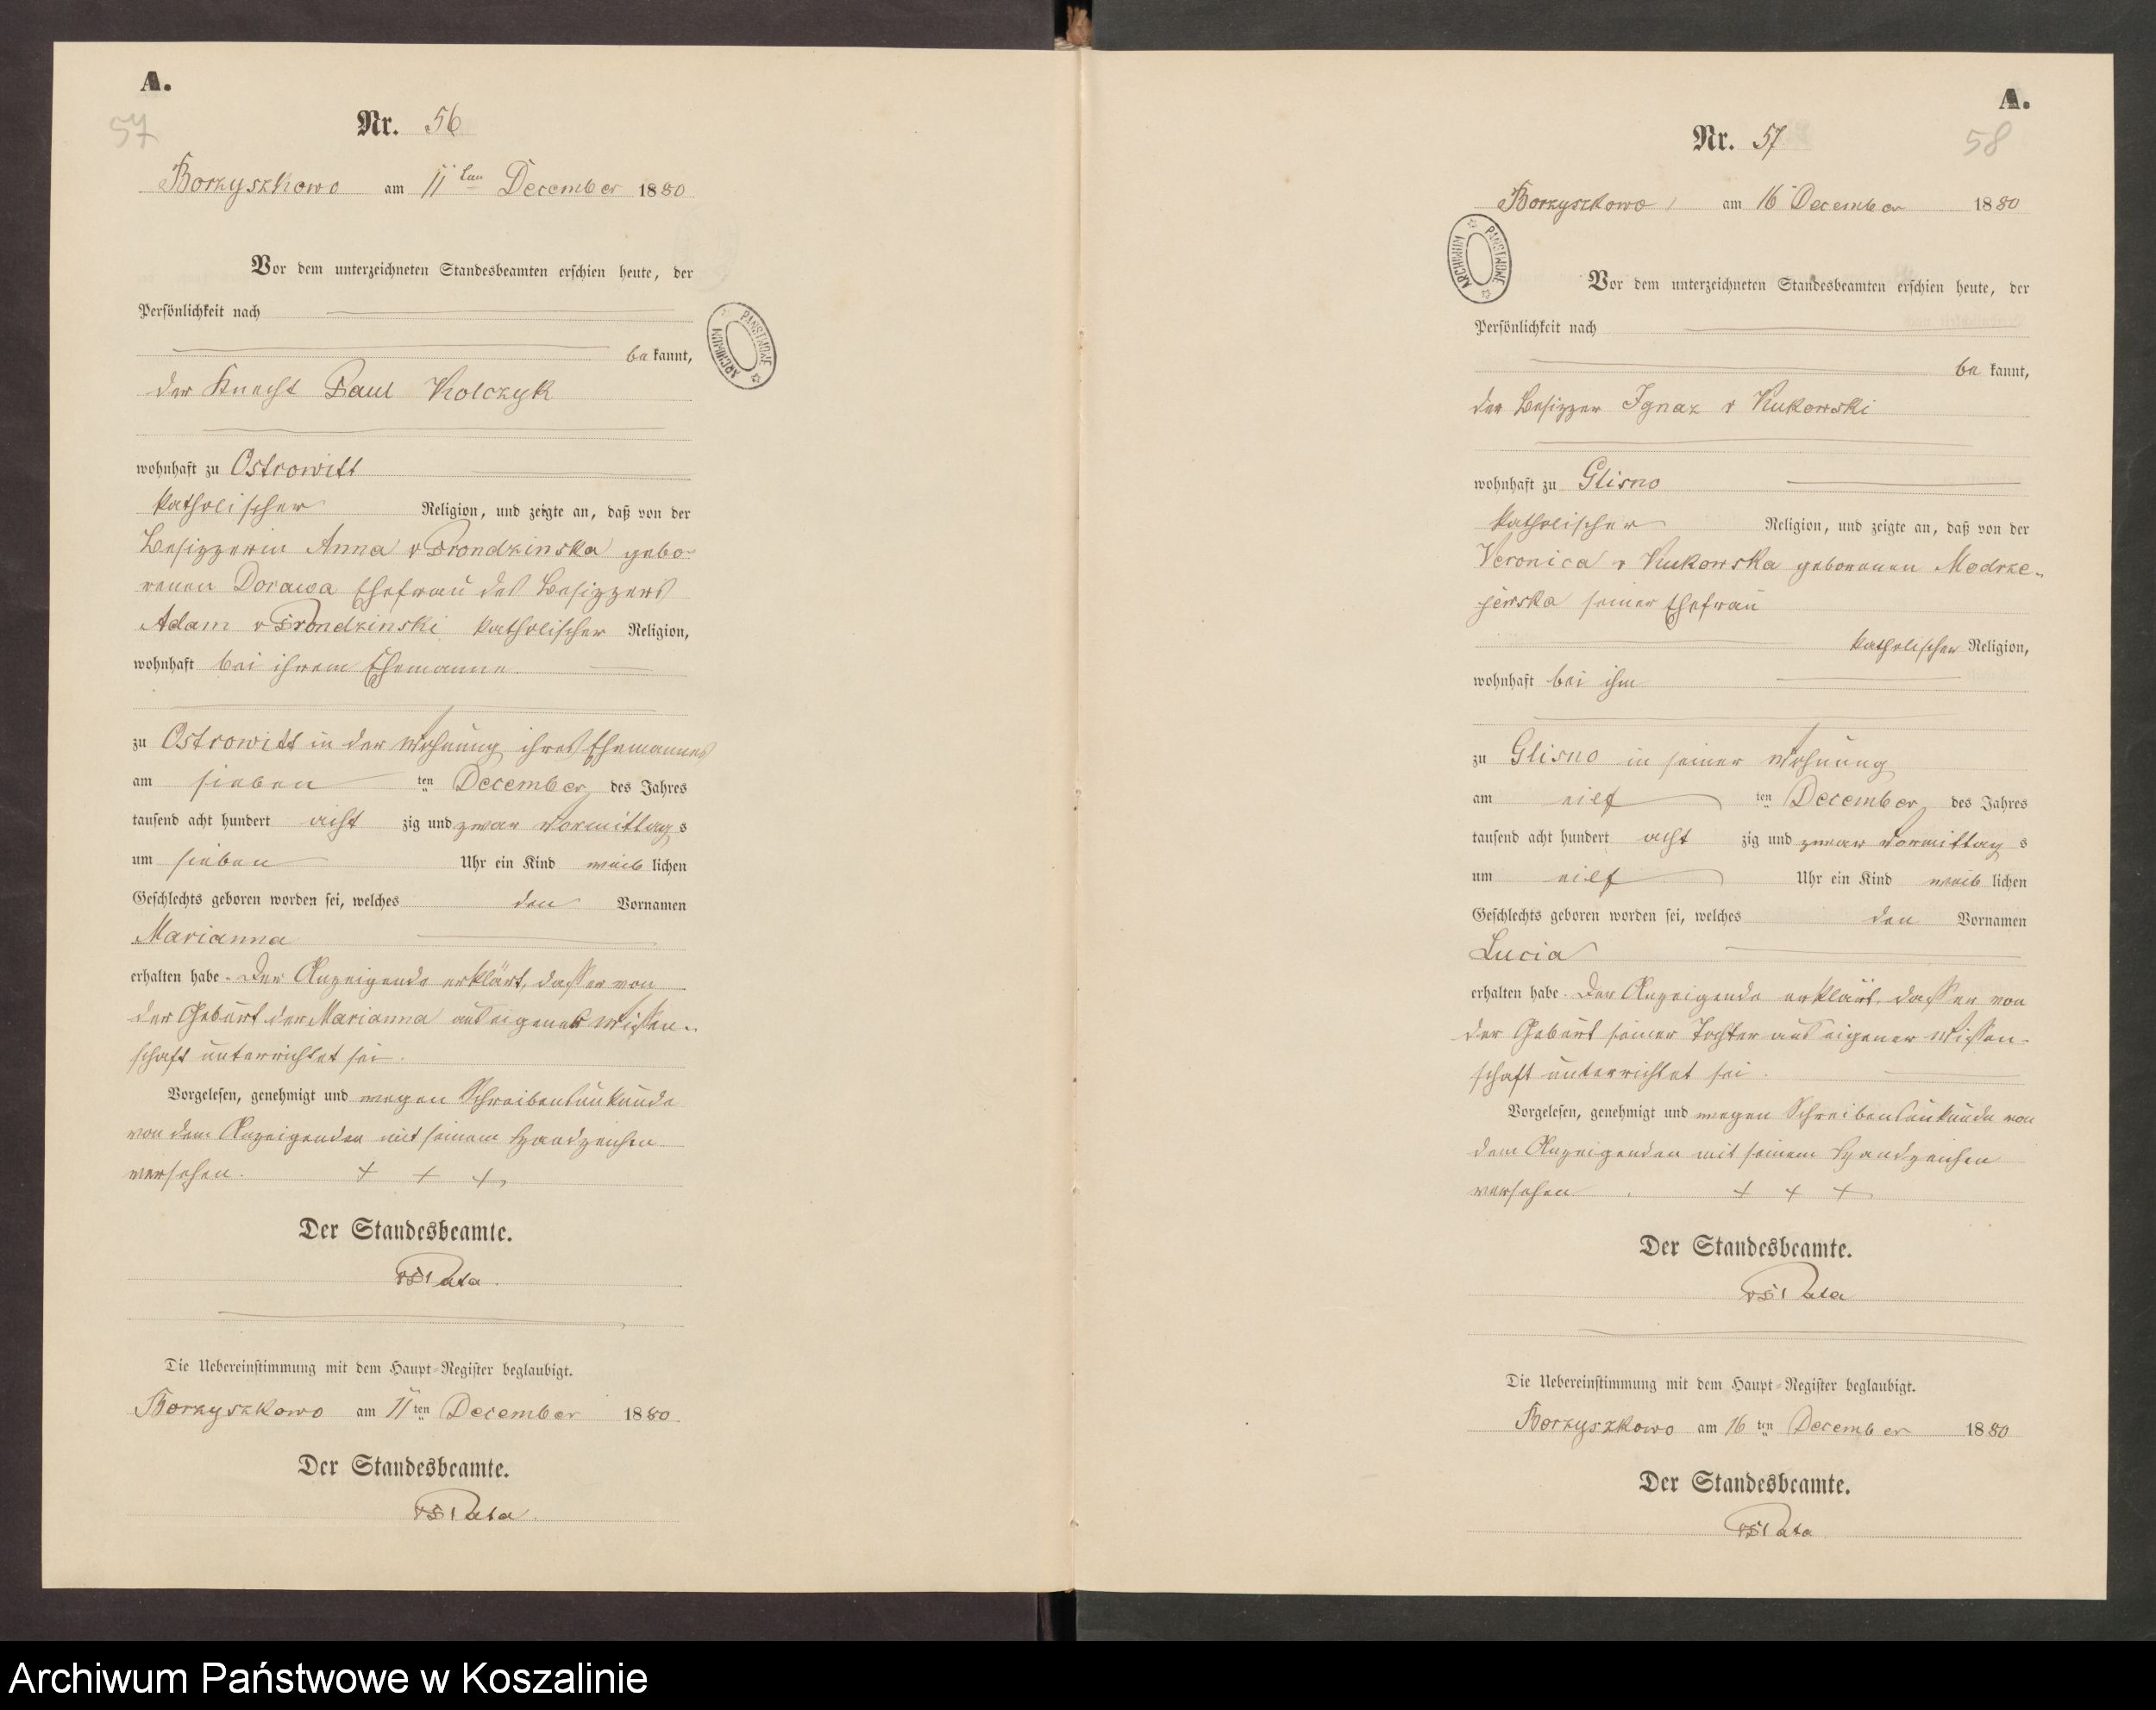 A.
57
Nr. 56
Borzyszkowo am 11ten December 1880
Vor dem unterzeichneten Standesbeamten erschien heute, der
Persönlichkeit nach
be kannt,
der Knecht Paul Kolczyk
wohnhaft zu Ostrowitt
katholischer Religion, und zeigte an, daß von der
Besizzerin Anna v Prondzinska gebo-
renen Dorawa Ehefrau des Besizzers
Adam v Prondzinski katholischer Religion,
wohnhaft bei ihrem Ehemanne
zu Ostrowitt in der Wohnung ihres Ehemannes
am sieben ten December des Jahres
tausend acht hundert acht zig und zwar Vormittag s
um sieben Uhr ein Kind weib lichen
Geschlechts geboren worden sei, welches den Vornamen
Marianna
erhalten habe. Der Anzeigende erklärt, dass er von
der Geburt der Marianna aus eigener Wissen-
schaft unterrichtet sei.
Vorgelesen, genehmigt und wegen Schreibensunkunde
von dem Anzeigenden mit seinem Handzeichen
versehen. + + +
Der Standesbeamte.
Pata.
Die Uebereinstimmung mit dem Haupt-Register beglaubigt.
Borzyszkowo am 11 ten December 1880.
Der Standesbeamte.
Pata.
ARCHIWUM PAŃSTWOWE
A.
58
Nr. 57
Borzyszkowo am 16 December 1880
ARCHIWUM PAŃSTWOWE
Vor dem unterzeichneten Standesbeamten erschien heute, der
Persönlichkeit nach
be kannt,
der Besizzer Ignaz v Kukowski
wohnhaft zu Glisno
katholischer Religion, und zeigte an, daß von der
Veronica v Kukowska geborenen Modrze-
jewska seiner Ehefrau
katholischer Religion,
wohnhaft bei ihm
zu Glisno in seiner Wohnung
am eilf ten December des Jahres
tausend acht hundert acht zig und zwar Vormittag s
um eilf Uhr ein Kind weib lichen
Geschlechts geboren worden sei, welches den Vornamen
Lucia
erhalten habe. Der Anzeigende erklärt, dass er von
der Geburt seiner Tochter aus eigener Wissen-
schaft unterrichtet sei.
Vorgelesen, genehmigt und wegen Schreibensunkunde von
dem Anzeigenden mit seinem Handzeichen
versehen. + + +
Der Standesbeamte.
Pata
Die Uebereinstimmung mit dem Haupt-Register beglaubigt.
Borzyszkowo am 16 ten December 1880
Der Standesbeamte.
Pata
Archiwum Państwowe w Koszalinie